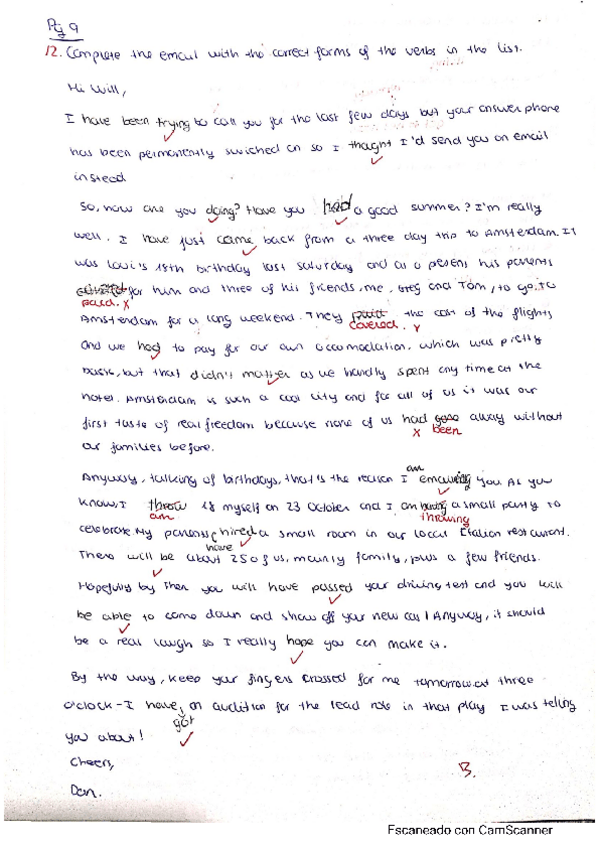 Pg 9
12. Complete the email with the correct forms of the verbs in the list.
Hi Will,
I have been trying to call you for the last few days but your answerphone
has been permanently swiched on so I thaght I'd send you an email
instead
So, how are you doing? Have you had a good summer? I'm really
well. I have just came back from a three day trip to Amsterdam. It
was Loui's 18th birthday last saturday and as a pesens his parents
for him and three of his friends, me, Greg and Tom, to go to
paid. x
Amsterdam for a long weekend. They paid the cost of the flights
covered. x
and we had to pay for our own accomodation, which was pretty
basic, but that didn't matter as we hardly spent any time at the
hotel. Amsterdam is such a cool city and for all of us it was our
first taste of real freedom because none of us had gone away without
x been
our families before.
am
Anyway, talking of birthdays, that's the reason I emailing you. As you
know, I throw 18 myself on 23 October and I am having a small party to
am throwing
celebrate. My parents hired a small room in our local Italian restaurant.
have
There will be about 25 of us, mainly family, plus a few friends.
Hopefully by then you will have passed your driving test and you will
be able to come down and show off your new car! Anyway, it should
be a real laugh so I really hope you can make it.
By the way, keep your fingers crossed for me tomorrow at three
o'clock - I have an audition for the lead role in that play I was telling
got
you about!
Cheers,
B.
Dan.
Escaneado con CamScanner